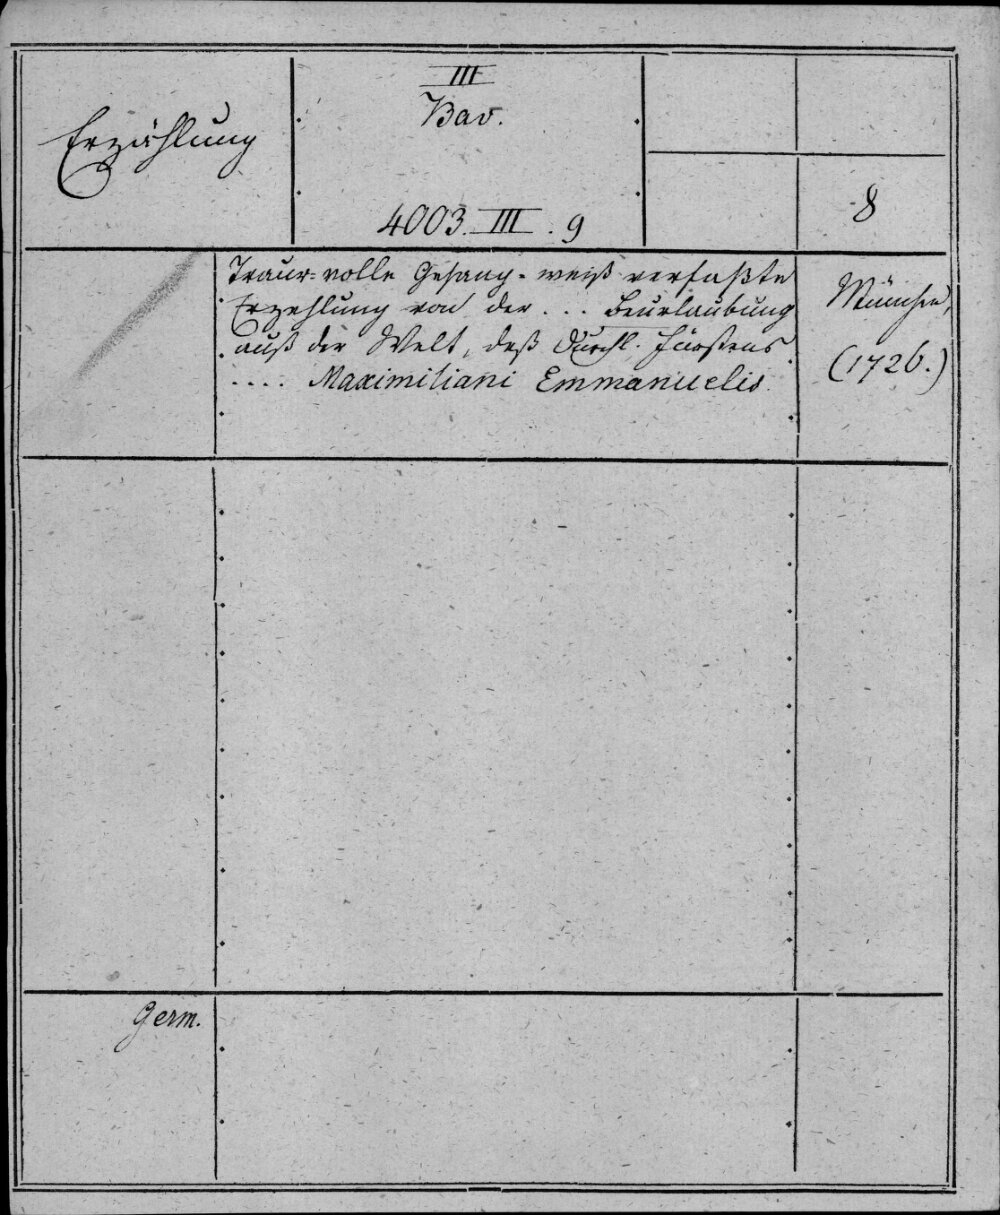 Erzählung
III
Bav.
4003. III. 9
8
Traur=volle Gesang-weiß verfaßte
Erzehlung von der ... Beurlaubung
auß der Welt, deß Durchl. Fürstens
.... Maximiliani Emmanuelis
München,
(1726.)
Germ.